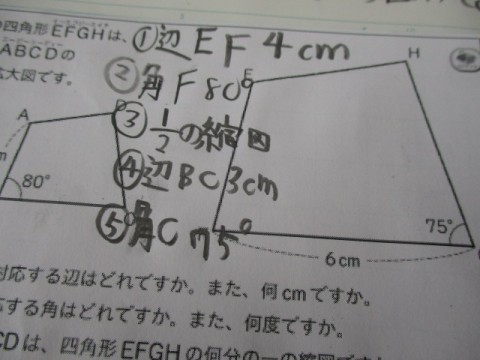 四角形EFGHは、
ABCDの
拡大図です。
①辺EF 4cm
②角F80°
③1/2の縮図
④辺BC3cm
⑤角C 75°
A
E
H
80°
75°
6cm
対応する辺はどれですか。また、何cmですか。
応する角はどれですか。また、何度ですか。
CDは、四角形EFGHの何分の一の縮図ですか